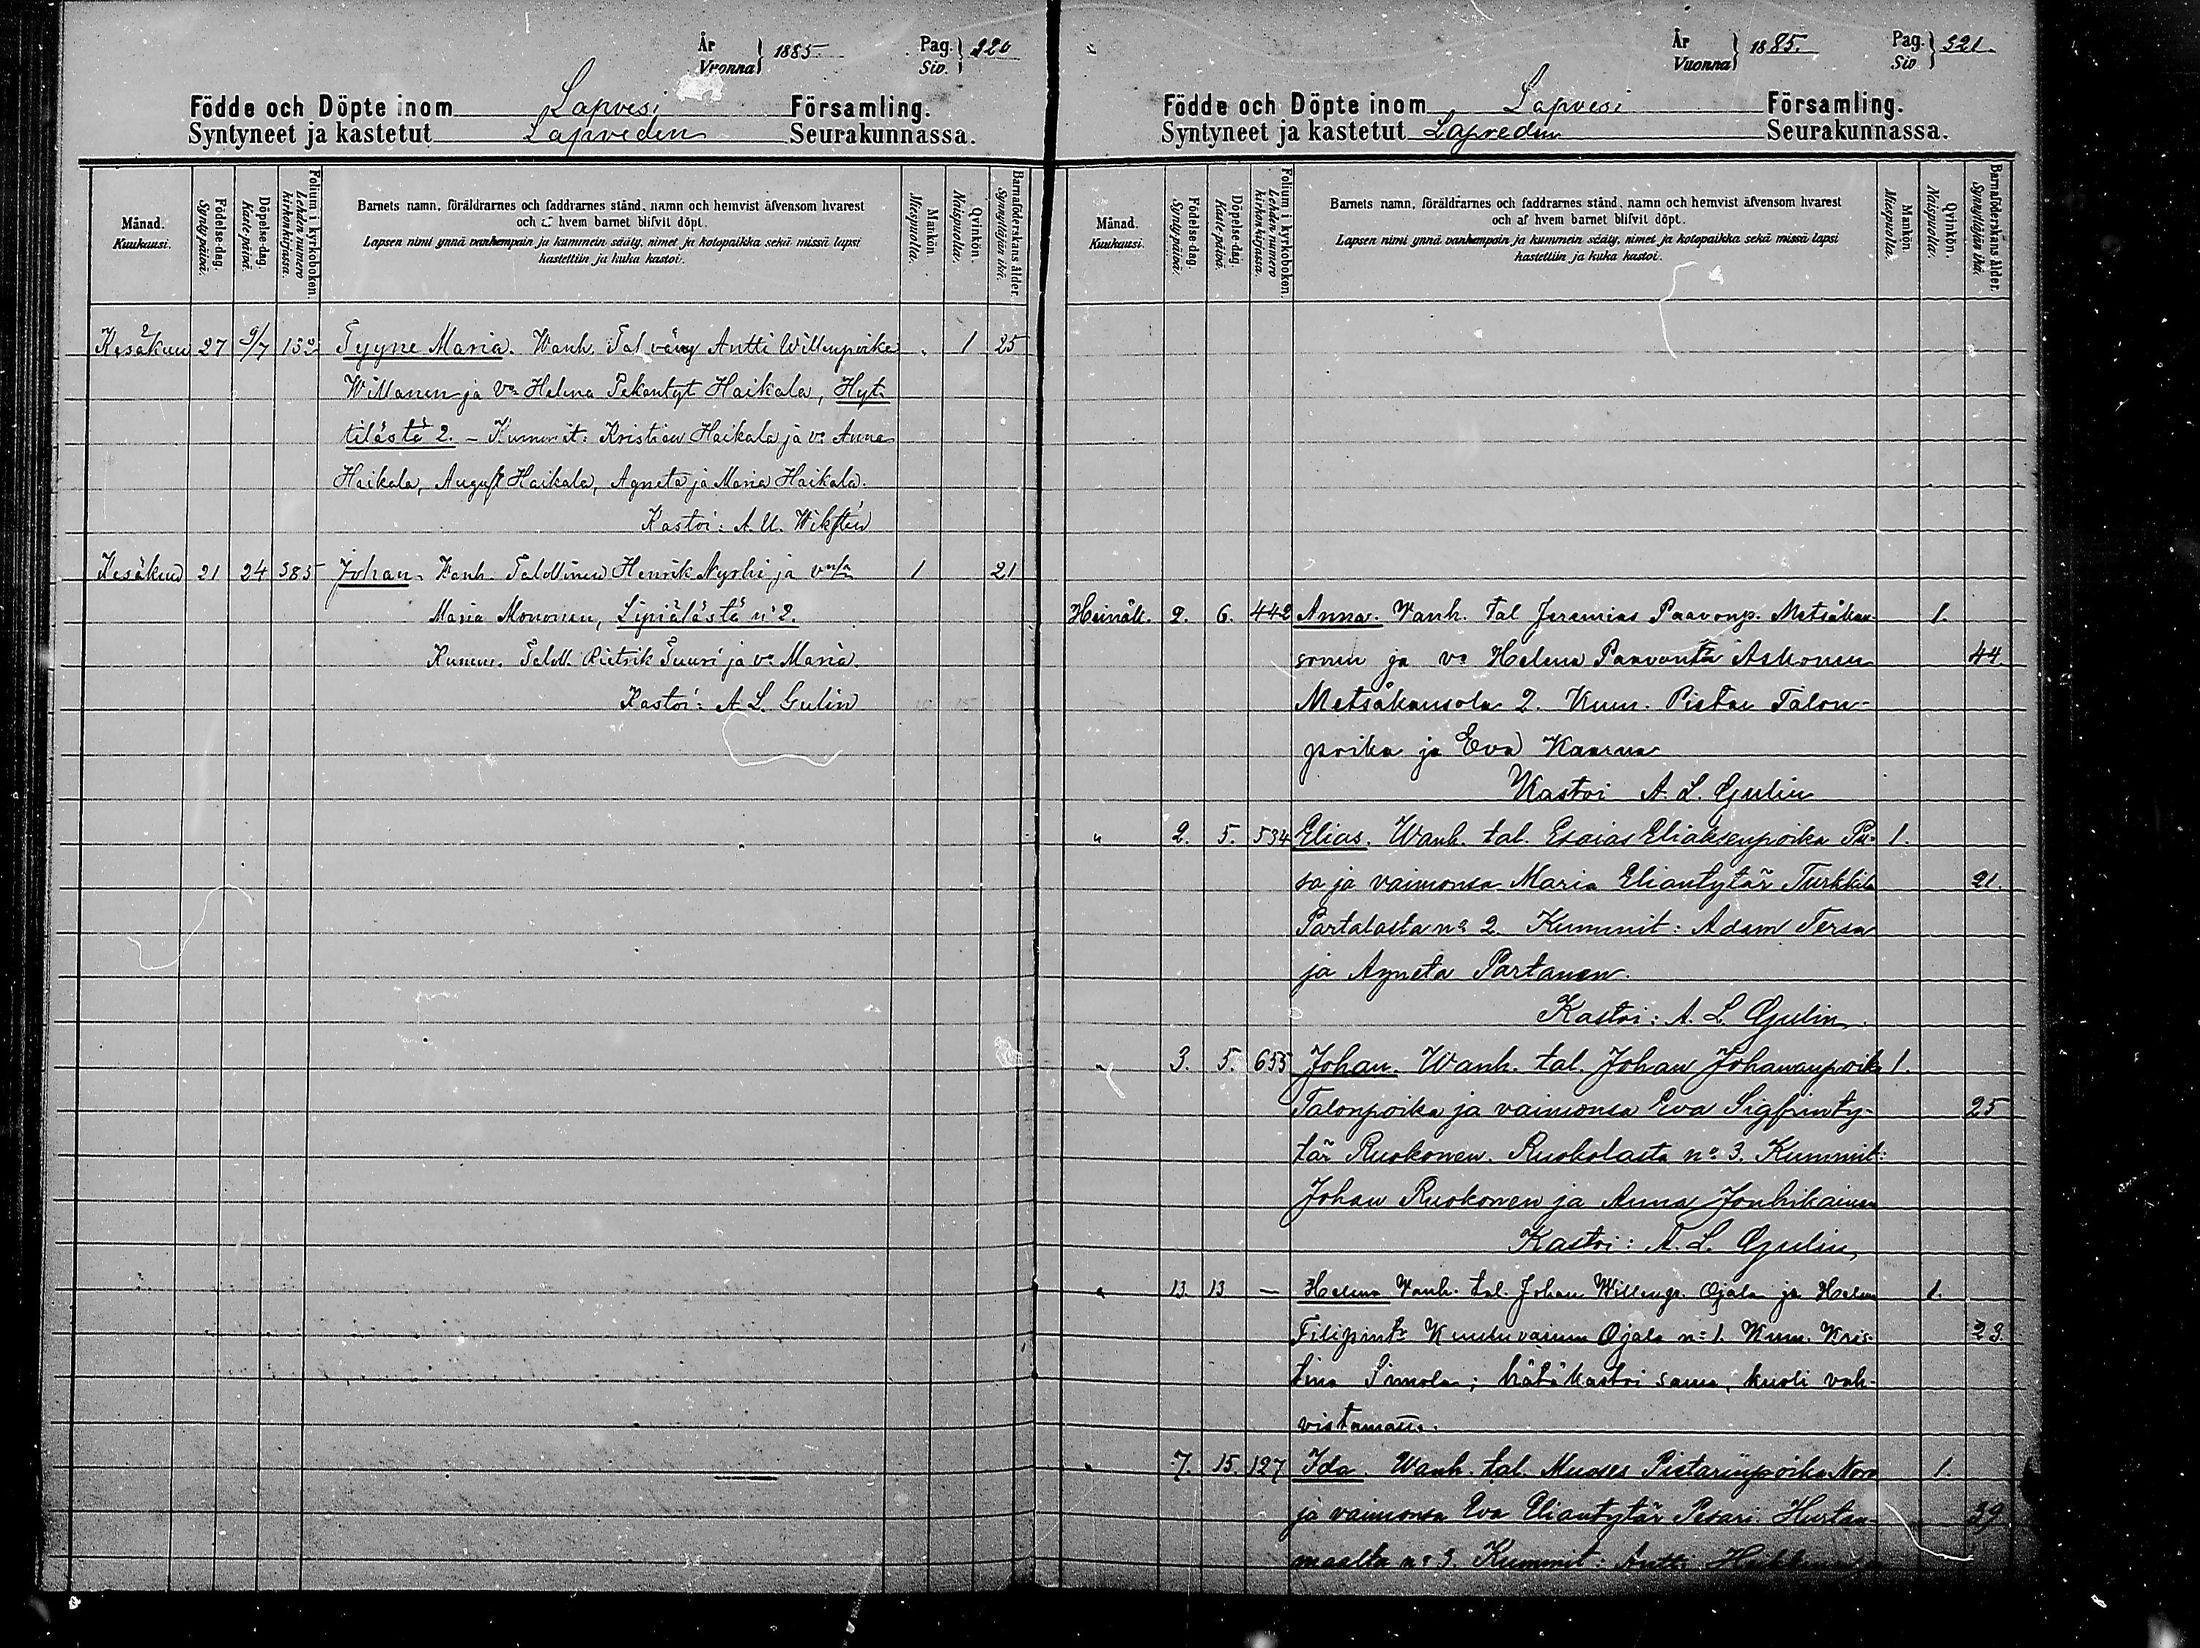 År
Vuonna } 1885
Pag.
Siv. } 320
Födde och Döpte inom Lapvesi Församling.
Syntyneet ja kastetut Lapveden Seurakunnassa.
Månad.
Kuukausi.
Födelse-dag.
Synty päivä.
Döpelse-dag.
Kaste-päivä.
Folium i kyrkoboken.
Lehden numero kirkonkirjassa.
Barnets namn, föräldrarnes och faddrarnes stånd, namn och hemvist äfvensom hvarest
och af hvem barnet blifvit döpt.
Lapsen nimi ynnä vanhempain ja kummein sääty, nimet ja kotopaikka sekä missä lapsi
kastettiin ja kuka kastoi.
Mankön.
Miespuolia.
Qvinkön.
Naispuolia.
Barnaföderskans ålder.
Synnyttäjän ikä.
Kesäkuu 27 9/7 132 Tyyne Maria. Wanh. Tal väny Antti Willenpoika 1 25
Willanen ja vo Helena Pekantyt Haikala, Hyt-
tilästä 2. – Kummit: Kristian Haikala ja vo Anna
Haikala, August Haikala, Agneta ja Maria Haikala.
Kastoi: A. U. Wikstén
Kesäkuu 21 24 385 Johan. Vanh. Talollinen Henrik Nyrhi ja vnsa 1 21
Maria Mononen, Lipiälästä no 2.
Kumm. Taloll. Rietrik Tuuri ja vo Maria.
Kastoi: A. L. Gulin
År
Vuonna } 1885.
Pag.
Siv } 321.
Födde och Döpte inom Lapvesi Församling.
Syntyneet ja kastetut Lapveden Seurakunnassa.
Månad.
Kuukausi.
Födelse-dag.
Synty päivä.
Döpelse-dag.
Kaste-päivä.
Folium i kyrkoboken.
Lehden numero kirkonkirjassa.
Barnets namn, föräldrarnes och faddrarnes stånd, namn och hemvist äfvensom hvarest
och af hvem barnet blifvit döpt.
Lapsen nimi ynnä vanhempain ja kummein sääty, nimet ja kotopaikka sekä missä lapsi
kastettiin ja kuka kastoi.
Mankön.
Miespuolia.
Qvinkön.
Naispuolia.
Barnaföderskans ålder.
Synnyttäjän ikä.
Heinäk. 2. 6. 442 Anna. Vanh. tal Jeremias Paavonp. Metsäkan- 1.
sonen ja vo Helena Paavontr Askonen 44
Metsäkansola 2. Kum. Pietar Talon-
poika ja Eva Kaarna
Kastoi A. L. Gulin
" 2. 5. 534 Elias. Wanh. tal. Esaias Eliaksenpoika Pu- 1.
sa ja vaimonsa Maria Eliantytär Turkkila 21.
Partalasta no 2. Kummit: Adam Tersa
ja Agneta Partanen.
Kastoi: A. L. Gulin.
" 3. 5. 655 Johan. Wanh. tal. Johan Johananpoika 1.
Talonpoika ja vaimonsa Eva Sigfrinty- 25
tär Ruokonen. Ruokolasta no 3. Kummit:
Johan Ruokonen ja Anna Jouhikainen
Kastoi: A. L. Gulin,
" 13. 13 — Helena Vanh. tal. Johan Willenp. Ojala ja Helena 1.
Filipintr Kuuluvainen Ojala no 1. Kum. Kris- 23.
tina Simola; hätäkastoi sama, kuoli vah-
vistamatta.
" 7. 15. 127 Ida. Wanh. tal. Mooses Pietarinpoika Noro 1.
ja vaimonsa Eva Eliantytär Pesari. Hurtan- 39
maalta no 3. Kummit: Antti